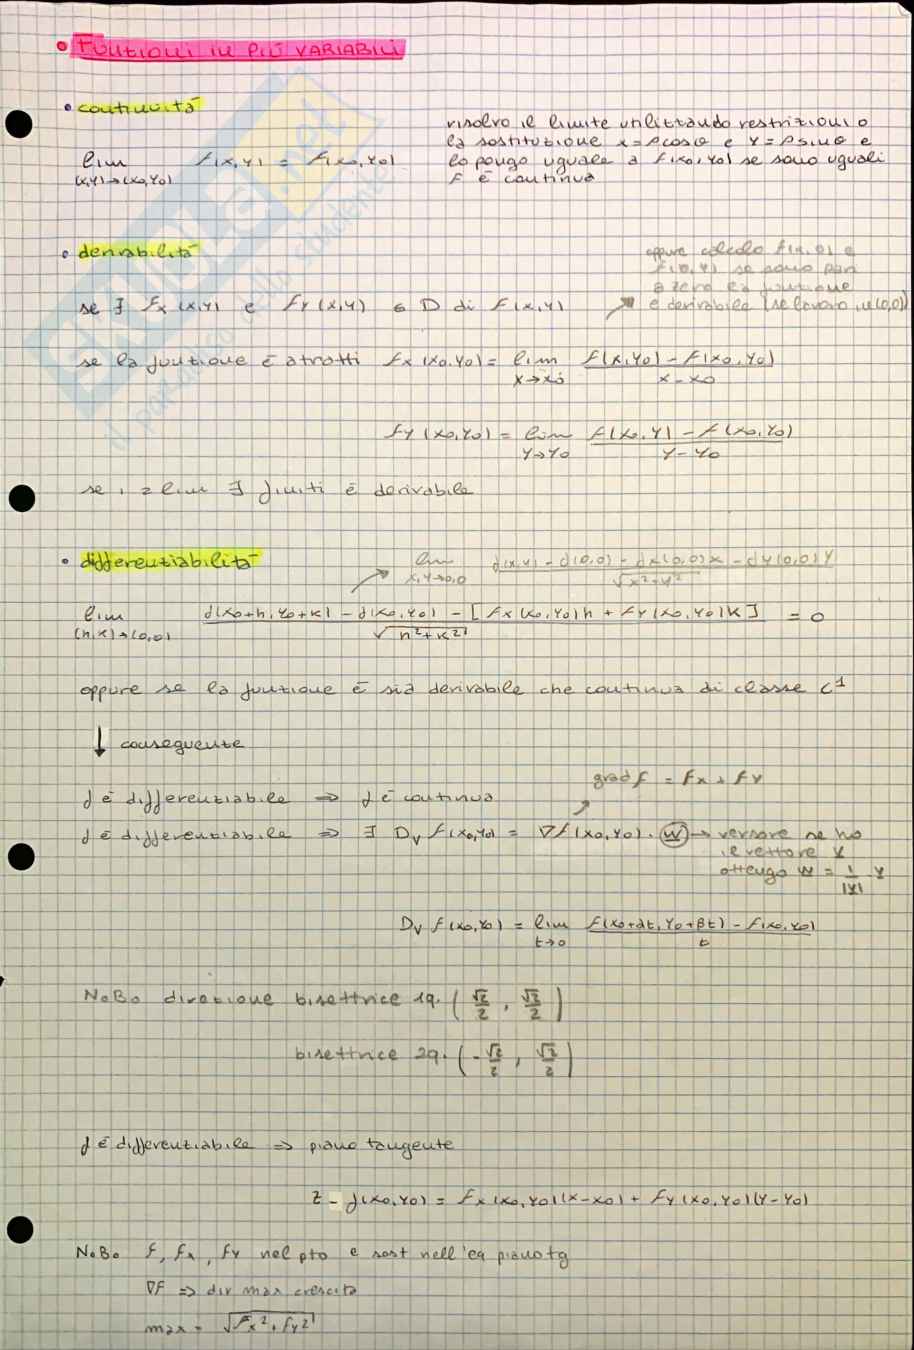 • Funzioni in più variabili
• continuità
lim f(x,y) = f(x0,y0)
(x,y)→(x0,y0)
risolvo il limite utilizzando restrizioni o
la sostituzione x=ρcosθ e y=ρsinθ e
lo pongo uguale a f(x0,y0) se sono uguali
f è continua
• derivabilità
oppure calcolo f(x,0) e
f(0,y) se sono pari
a zero la funzione
è derivabile (se lavoro in (0,0))
se ∃ fx(x,y) e fy(x,y) ∈ D di f(x,y)
se la funzione è a tratti fx(x0,y0) = lim f(x,y0) - f(x0,y0)
x→x0 x-x0
fy(x0,y0) = lim f(x0,y) - f(x0,y0)
y→y0 y-y0
se i 2 lim ∃ finiti è derivabile
• differenziabilità
lim f(x,y) - f(0,0) - fx(0,0)x - fy(0,0)y
x,y→0,0 √x²+y²
lim f(x0+h,y0+k) - f(x0,y0) - [fx(x0,y0)h + fy(x0,y0)k] = 0
(h,k)→(0,0) √h²+k²
oppure se la funzione è sia derivabile che continua di classe C¹
↓ conseguente
grad f = fx + fy
f è differenziabile ⇒ f è continua
f è differenziabile ⇒ ∃ Dv f(x0,y0) = ∇f(x0,y0) · w → versore se ho
il vettore v
ottengo w = 1/|v| · v
Dv f(x0,y0) = lim f(x0+αt, y0+βt) - f(x0,y0)
t→0 t
N.B. direzione bisettrice 1q. (√2/2, √2/2)
bisettrice 2q. (-√2/2, √2/2)
f è differenziabile ⇒ piano tangente
z - f(x0,y0) = fx(x0,y0)(x-x0) + fy(x0,y0)(y-y0)
N.B. f, fx, fy nel pto e sost nell'eq piano tg
∇f ⇒ dir max crescita
max = √fx²+fy²
SKUOLA.net
il paradiso dello studente